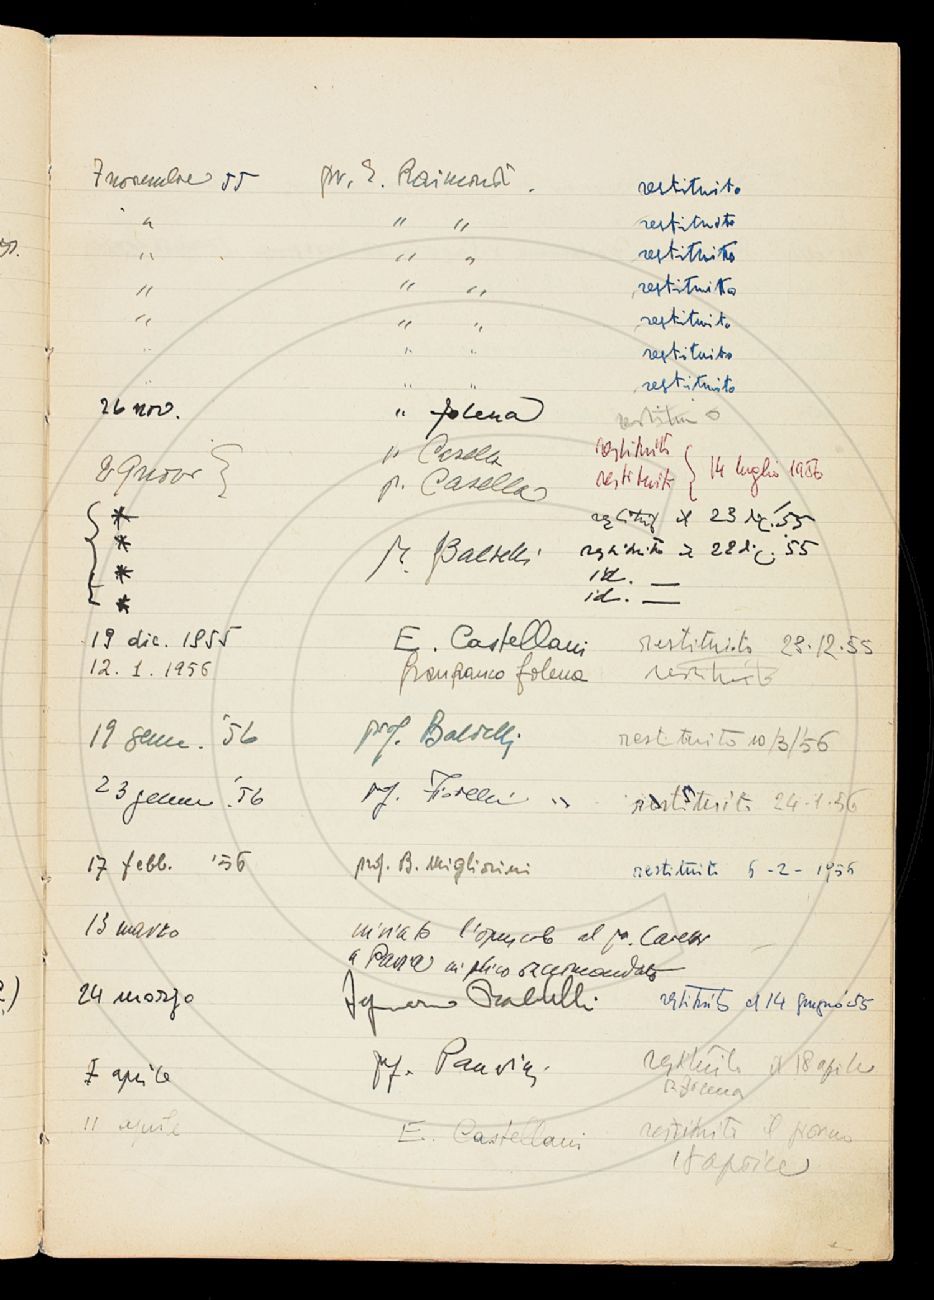 7 novembre 55 pr. E. Raimondi. restituito
" " " restituito
" " " restituito
" " " restituito
" " " restituito
" " " restituito
" " " restituito
26 nov. " Folena
" Casella restituito
p. Casella restituito } 14 luglio 1956
* 23 dic. '55
* Baldelli restituito 22 dic. '55
* id. —
* id. —
19 dic. 1955 E. Castellani restituito 28.12.55
12. 1. 1956 Gianfranco Folena restituito
19 genn. '56 prof. Baldelli restituito 10/3/56
23 genn. '56 restituito 24.1.56
17 febb. '56 prof. B. Migliorini restituito 6-2-1956
13 marzo inviato l'opuscolo al pr. Caretti
a Pavia in plico raccomandato
24 marzo Ignazio Baldelli restituito il 14 giugno 55
7 aprile restituito il 18 aprile
11 aprile E. Castellani restituito il giorno
18 aprile